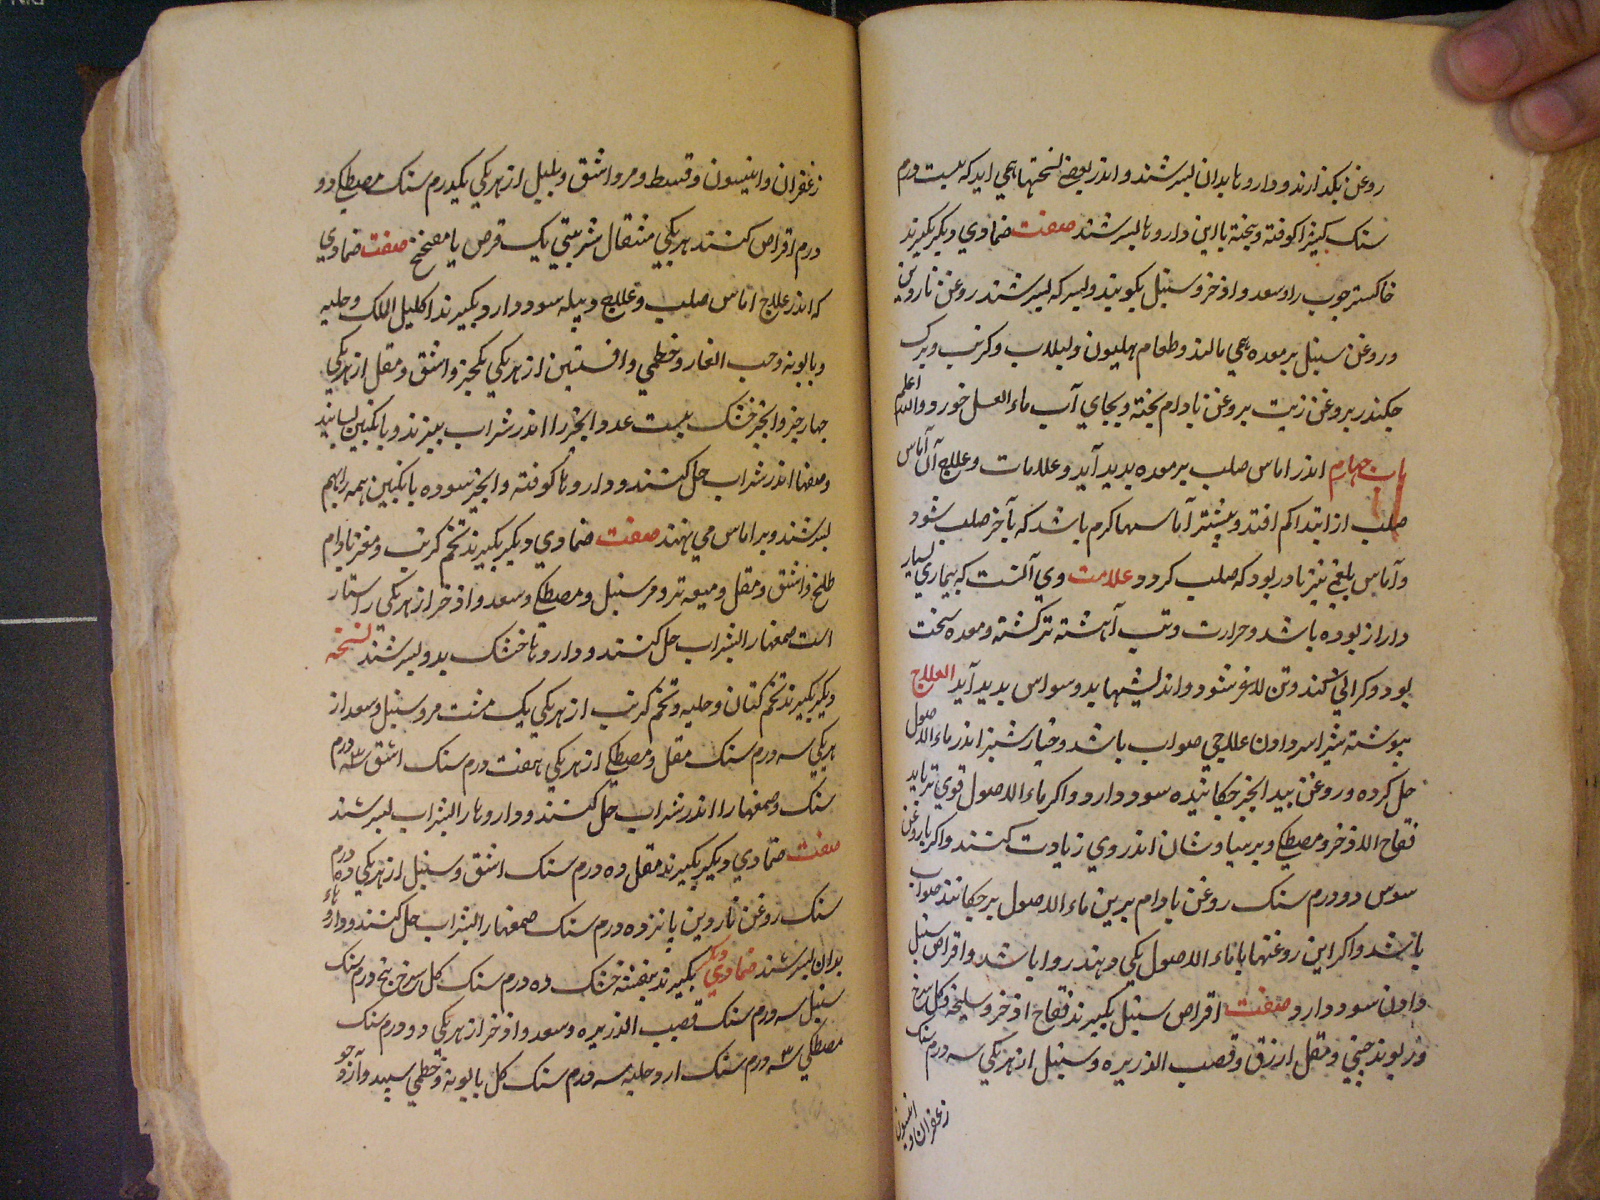 روغن بکذارند و داروها بدان بسرشند و اندر بعضی نسختها همی اید که بیست درم
سنک کبیرا کوفته و بیخته با این داروها بسرشند صفت ضمادی دیکر بکیرند
خاکستر چوب رز و سعد و اذخر و سنبل بکوبند و بسرکه بسرشند روغن ناردین
و روغن سنبل بر معده همی مالند و طعام هلیون و لبلاب و کرنب و برک
جکندر بروغن زیت بروغن بادام پخته و بجای آب ماء العسل خورد و الله اعلم
باب جهارم اندر اماس صلب بر معده بدید آید و علامات و علاج آن آماس
صلب از ابتدا کم افتد و بیشتر آماسها کرم باشد که بآخر صلب شود
و آماس بلغمی نیز نادر بود که صلب کردد علامت وی آنست که بیماری بسیار
دراز بوده باشد و حرارت و تب آهسته تر کشته و معده سخت
بود و کرانی کند و تن لاغر شود و اندیشهاء بد و وسواس بدید آید العلاج
بیوسته شیر اسر دادن علاجی صواب باشد و خیار شنبر اندر ماء الاصول
حل کرده و روغن بید انجیر جکانیده سود دارد و اکر ماء الاصول قوی تر باید
فقاح الاذخر و مصطکی و برسیاوشان اندر وی زیادت کنند و اکر با روغن
سوس دو درم سنک روغن بادام برین ماء الاصول برجکانند صواب
باشد و اکر این روغنها با ماء الاصول یکی دهند روا باشد و اقراص سنبل
دادن سود دارد صفت اقراص سنبل بکیرند فقاح اذخر و سلیخه و کل سرخ
و ریوند جینی و مقل ازرق و قصب الذریره و سنبل از هر یکی سه درم سنک
زعفران و انیسون
زعفران و انیسون و قسط و مر و اشق و بلبل از هر یکی یکدرم سنک مصطکی دو
درم اقراص کنند هر یکی مثقال شربتی یک قرص با مصخخ صفت ضمادی
که اندر علاج اماس صلب و علاج دبیله سود دارد بکیرند اکلیل الملک و حلبه
و بابونه و حب الغار و خطمی و افسنتین از هر یکی یکجزو اشق و مقل از هر یکی
جهار جزو انجیر خشک بیست عدد انجیر را اندر شراب ببزند و با نکبین بسایند
و صمغها اندر شراب حل کنند و داروها کوفته و انجیر سوده با نکبین همه را بهم
بسرشند و بر اماس می نهند صفت ضمادی دیکر بکیرند تخم کرنب و مغز بادام
طلخ و اشق و مقل و میعه تر و مر و سنبل و مصطکی و سعد و اذخر از هر یکی راستا ر
است صمغها را بشراب حل کنند و داروها خشک بدو بسرشند نسخه
دیکر بکیرند تخم کتان و حلبه و تخم کرنب از هر یکی یک مشت مر و سنبل و سعد از
هر یکی سه درم سنک مقل و مصطکی از هر یکی هفت درم سنک اشق سه درم
سنک و صمغها را اندر شراب حل کنند و داروها را بشراب بسرشند
صفت ضمادی دیکر بکیرند مقل ده درم سنک اشق و سنبل از هر یکی ده درم
سنک روغن ناردین پانزده درم سنک صمغها را بشراب حل کنند و داروهاء
بدان بسرشند ضمادی دیکر بکیرند بنفشه خشک ده درم سنک کل سرخ پنج درم سنک
سنبل سه درم سنک قصب الذریره و سعد و اذخر از هر یکی دو درم سنک
مصطکی سه درم سنک ارد حلبه سه درم سنک کل بابونه و خطمی سبید و آرد جو